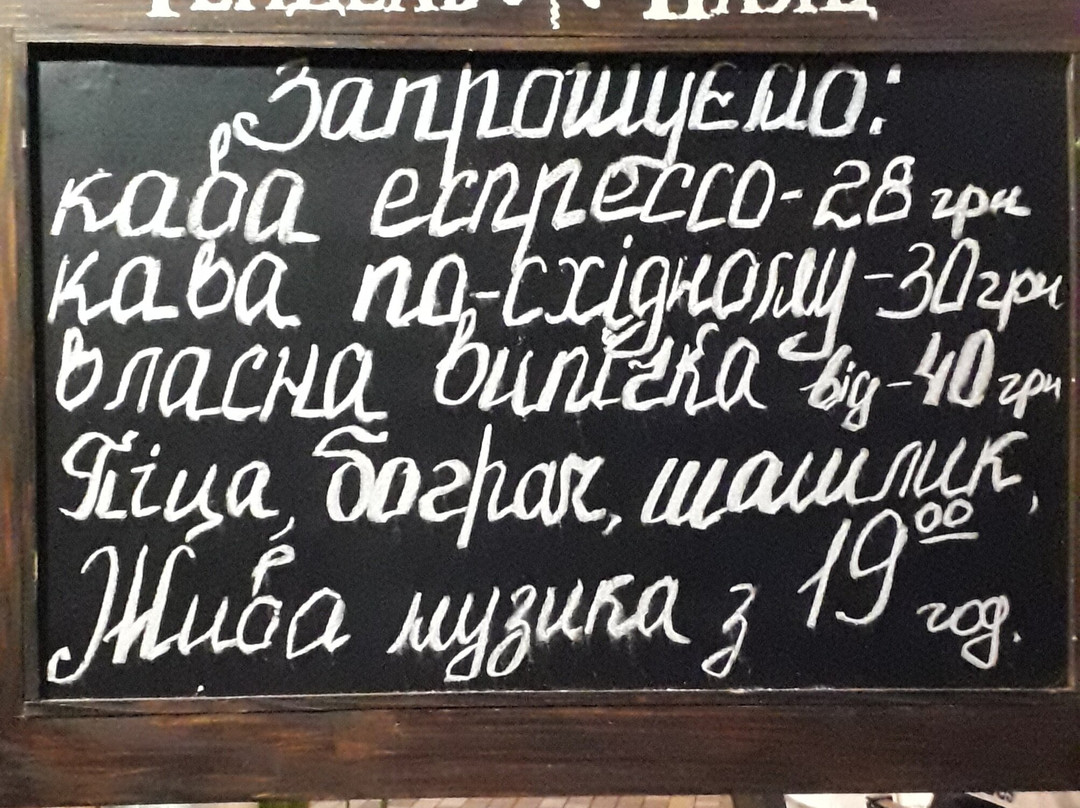 Запрошуємо:
кава еспрессо - 28 грн
кава по-східному - 30 грн
власна випічка від - 40 грн
Піца, бограч, шашлик,
Жива музика з 19⁰⁰ год.